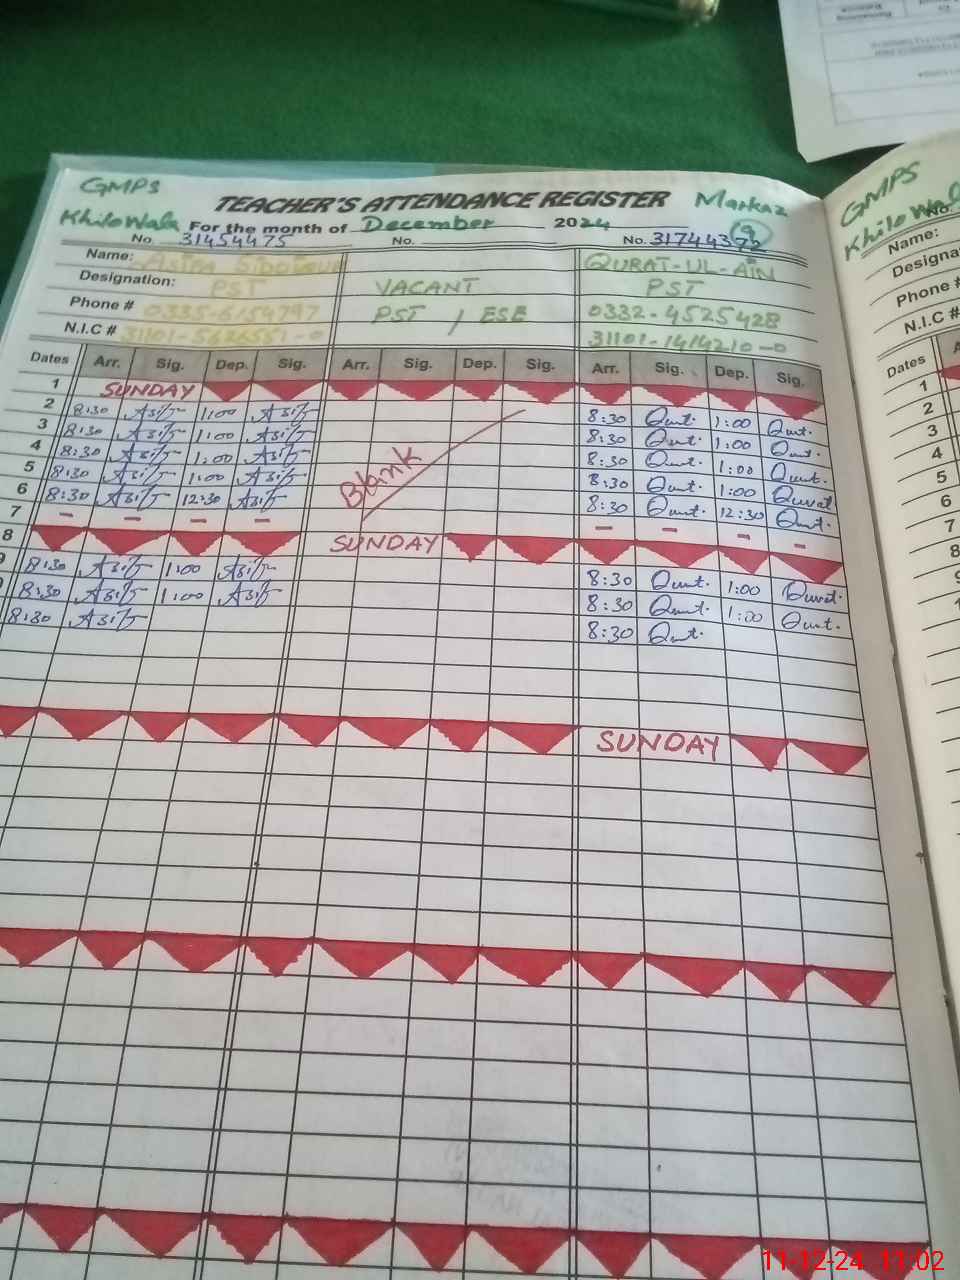 GMPS
TEACHER'S ATTENDANCE REGISTER Markaz
Khilo Wala For the month of December 2024 (9)
No. 31454475 No. No.
Name: QURAT-UL-AIN
Designation: PST VACANT PST
Phone # 0335-6154797 PST / ESE 0332-4525428
N.I.C # 31101-1414210-0
Dates Arr. Sig. Dep. Sig. Arr. Sig. Dep. Sig. Arr. Sig. Dep. Sig.
1 SUNDAY
2 8:30 Asif 1:00 Asif 8:30 Qurat. 1:00 Qurat.
3 8:30 Asif 1:00 Asif 8:30 Qurat. 1:00 Qurat.
4 8:30 Asif 1:00 Asif Blank 8:30 Qurat. 1:00 Qurat.
5 8:30 Asif 1:00 Asif 8:30 Qurat. 1:00 Qurat
6 8:30 Asif 12:30 Asif 8:30 Qurat. 12:30 Qurat.
7 - - - - - - - -
8 SUNDAY
8:30 Asif 1:00 Asif 8:30 Qurat. 1:00 Qurat.
8:30 Asif 1:00 Asif 8:30 Qurat. 1:00 Qurat.
8:30 Asif 8:30 Qurat.
SUNDAY
GMPS
Khilo Wala
No.
Name:
Phone #
N.I.C #
1
2
3
4
5
6
7
8
11-12-24 11:02